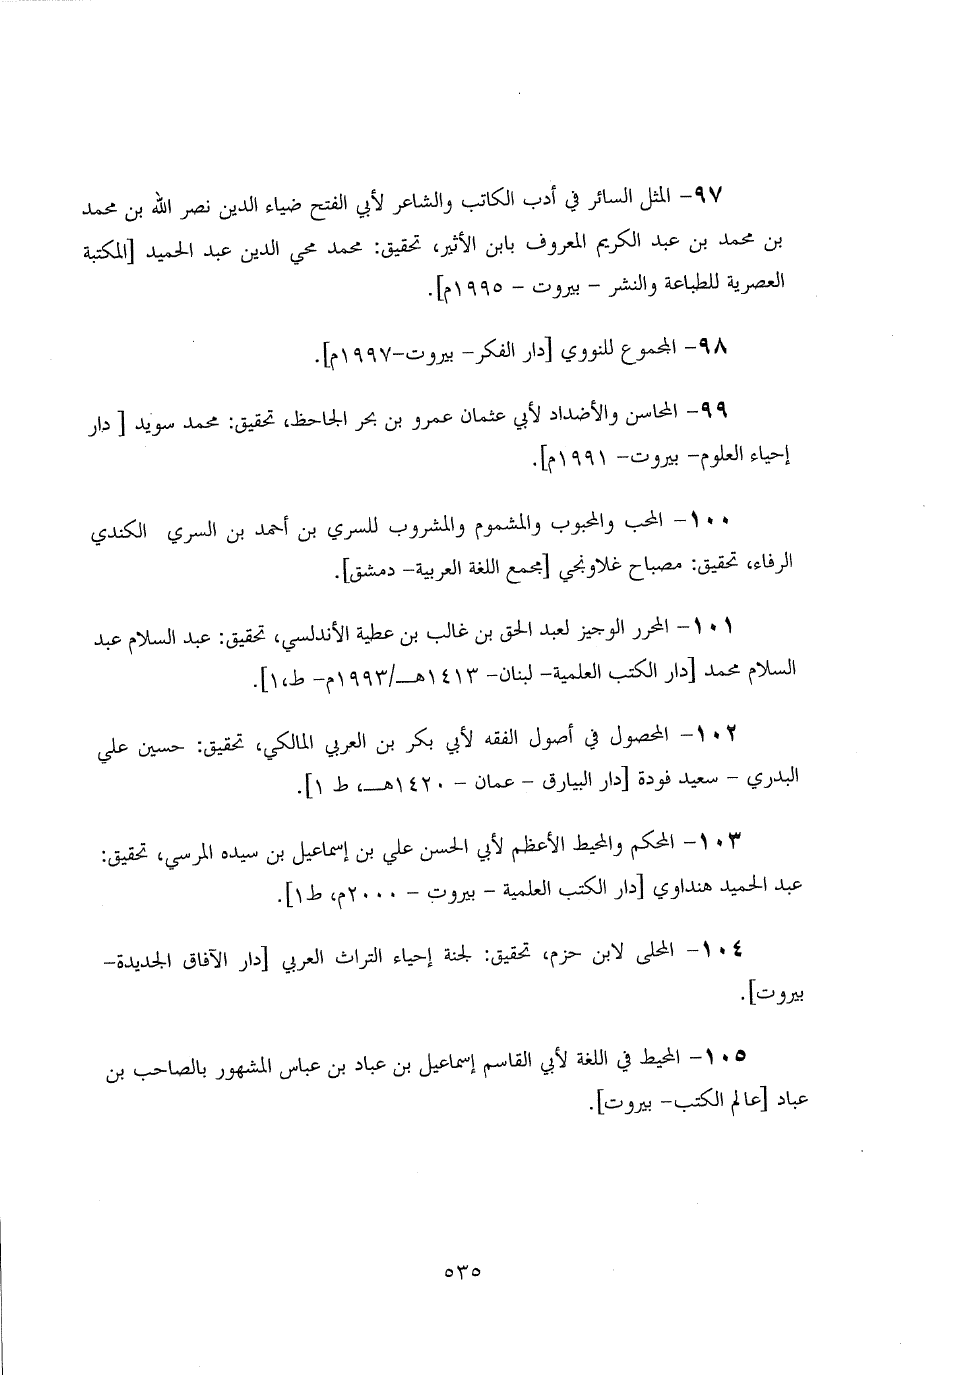 ٩٧- المثل السائر في أدب الكاتب والشاعر لأبي الفتح ضياء الدين نصر الله بن محمد
بن محمد بن عبد الكريم المعروف بابن الأثير، تحقيق: محمد محي الدين عبد الحميد [المكتبة
العصرية للطباعة والنشر – بيروت – ١٩٩٥م].
٩٨- المجموع للنووي [دار الفكر– بيروت–١٩٩٧م].
٩٩- المحاسن والأضداد لأبي عثمان عمرو بن بحر الجاحظ، تحقيق: محمد سويد [ دار
إحياء العلوم– بيروت– ١٩٩١م].
١٠٠- المحب والمحبوب والمشموم والمشروب للسري بن أحمد بن السري الكندي
الرفاء، تحقيق: مصباح غلاونجي [مجمع اللغة العربية– دمشق].
١٠١- المحرر الوجيز لعبد الحق بن غالب بن عطية الأندلسي، تحقيق: عبد السلام عبد
السلام محمد [دار الكتب العلمية– لبنان– ١٤١٣هـ/١٩٩٣م– ط،١].
١٠٢- المحصول في أصول الفقه لأبي بكر بن العربي المالكي، تحقيق: حسين علي
البدري – سعيد فودة [دار البيارق – عمان – ١٤٢٠هـ، ط ١].
١٠٣- المحكم والمحيط الأعظم لأبي الحسن علي بن إسماعيل بن سيده المرسي، تحقيق:
عبد الحميد هنداوي [دار الكتب العلمية – بيروت – ٢٠٠٠م، ط١].
١٠٤- المحلى لابن حزم، تحقيق: لجنة إحياء التراث العربي [دار الآفاق الجديدة–
بيروت].
١٠٥- المحيط في اللغة لأبي القاسم إسماعيل بن عباد بن عباس المشهور بالصاحب بن
عباد [عالم الكتب– بيروت].
٥٣٥